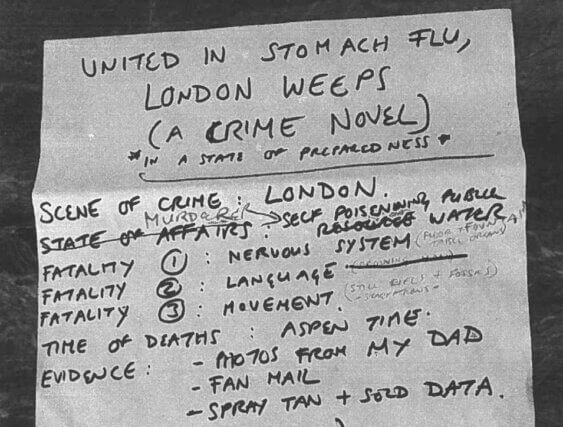 UNITED IN STOMACH FLU,
LONDON WEEPS
(A CRIME NOVEL)
*IN A STATE OF PREPAREDNESS*
SCENE OF CRIME: LONDON.
MURDERER → SELF POISONING PUBLIC
STATE OF AFFAIRS: WATER
FATALITY ①: NERVOUS SYSTEM
FATALITY ②: LANGUAGE
FATALITY ③: MOVEMENT. (STILL + FOSSILS)
TIME OF DEATHS: ASPEN TIME.
EVIDENCE: - PHOTOS FROM MY DAD
- FAN MAIL
- SPRAY TAN + SOLD DATA.